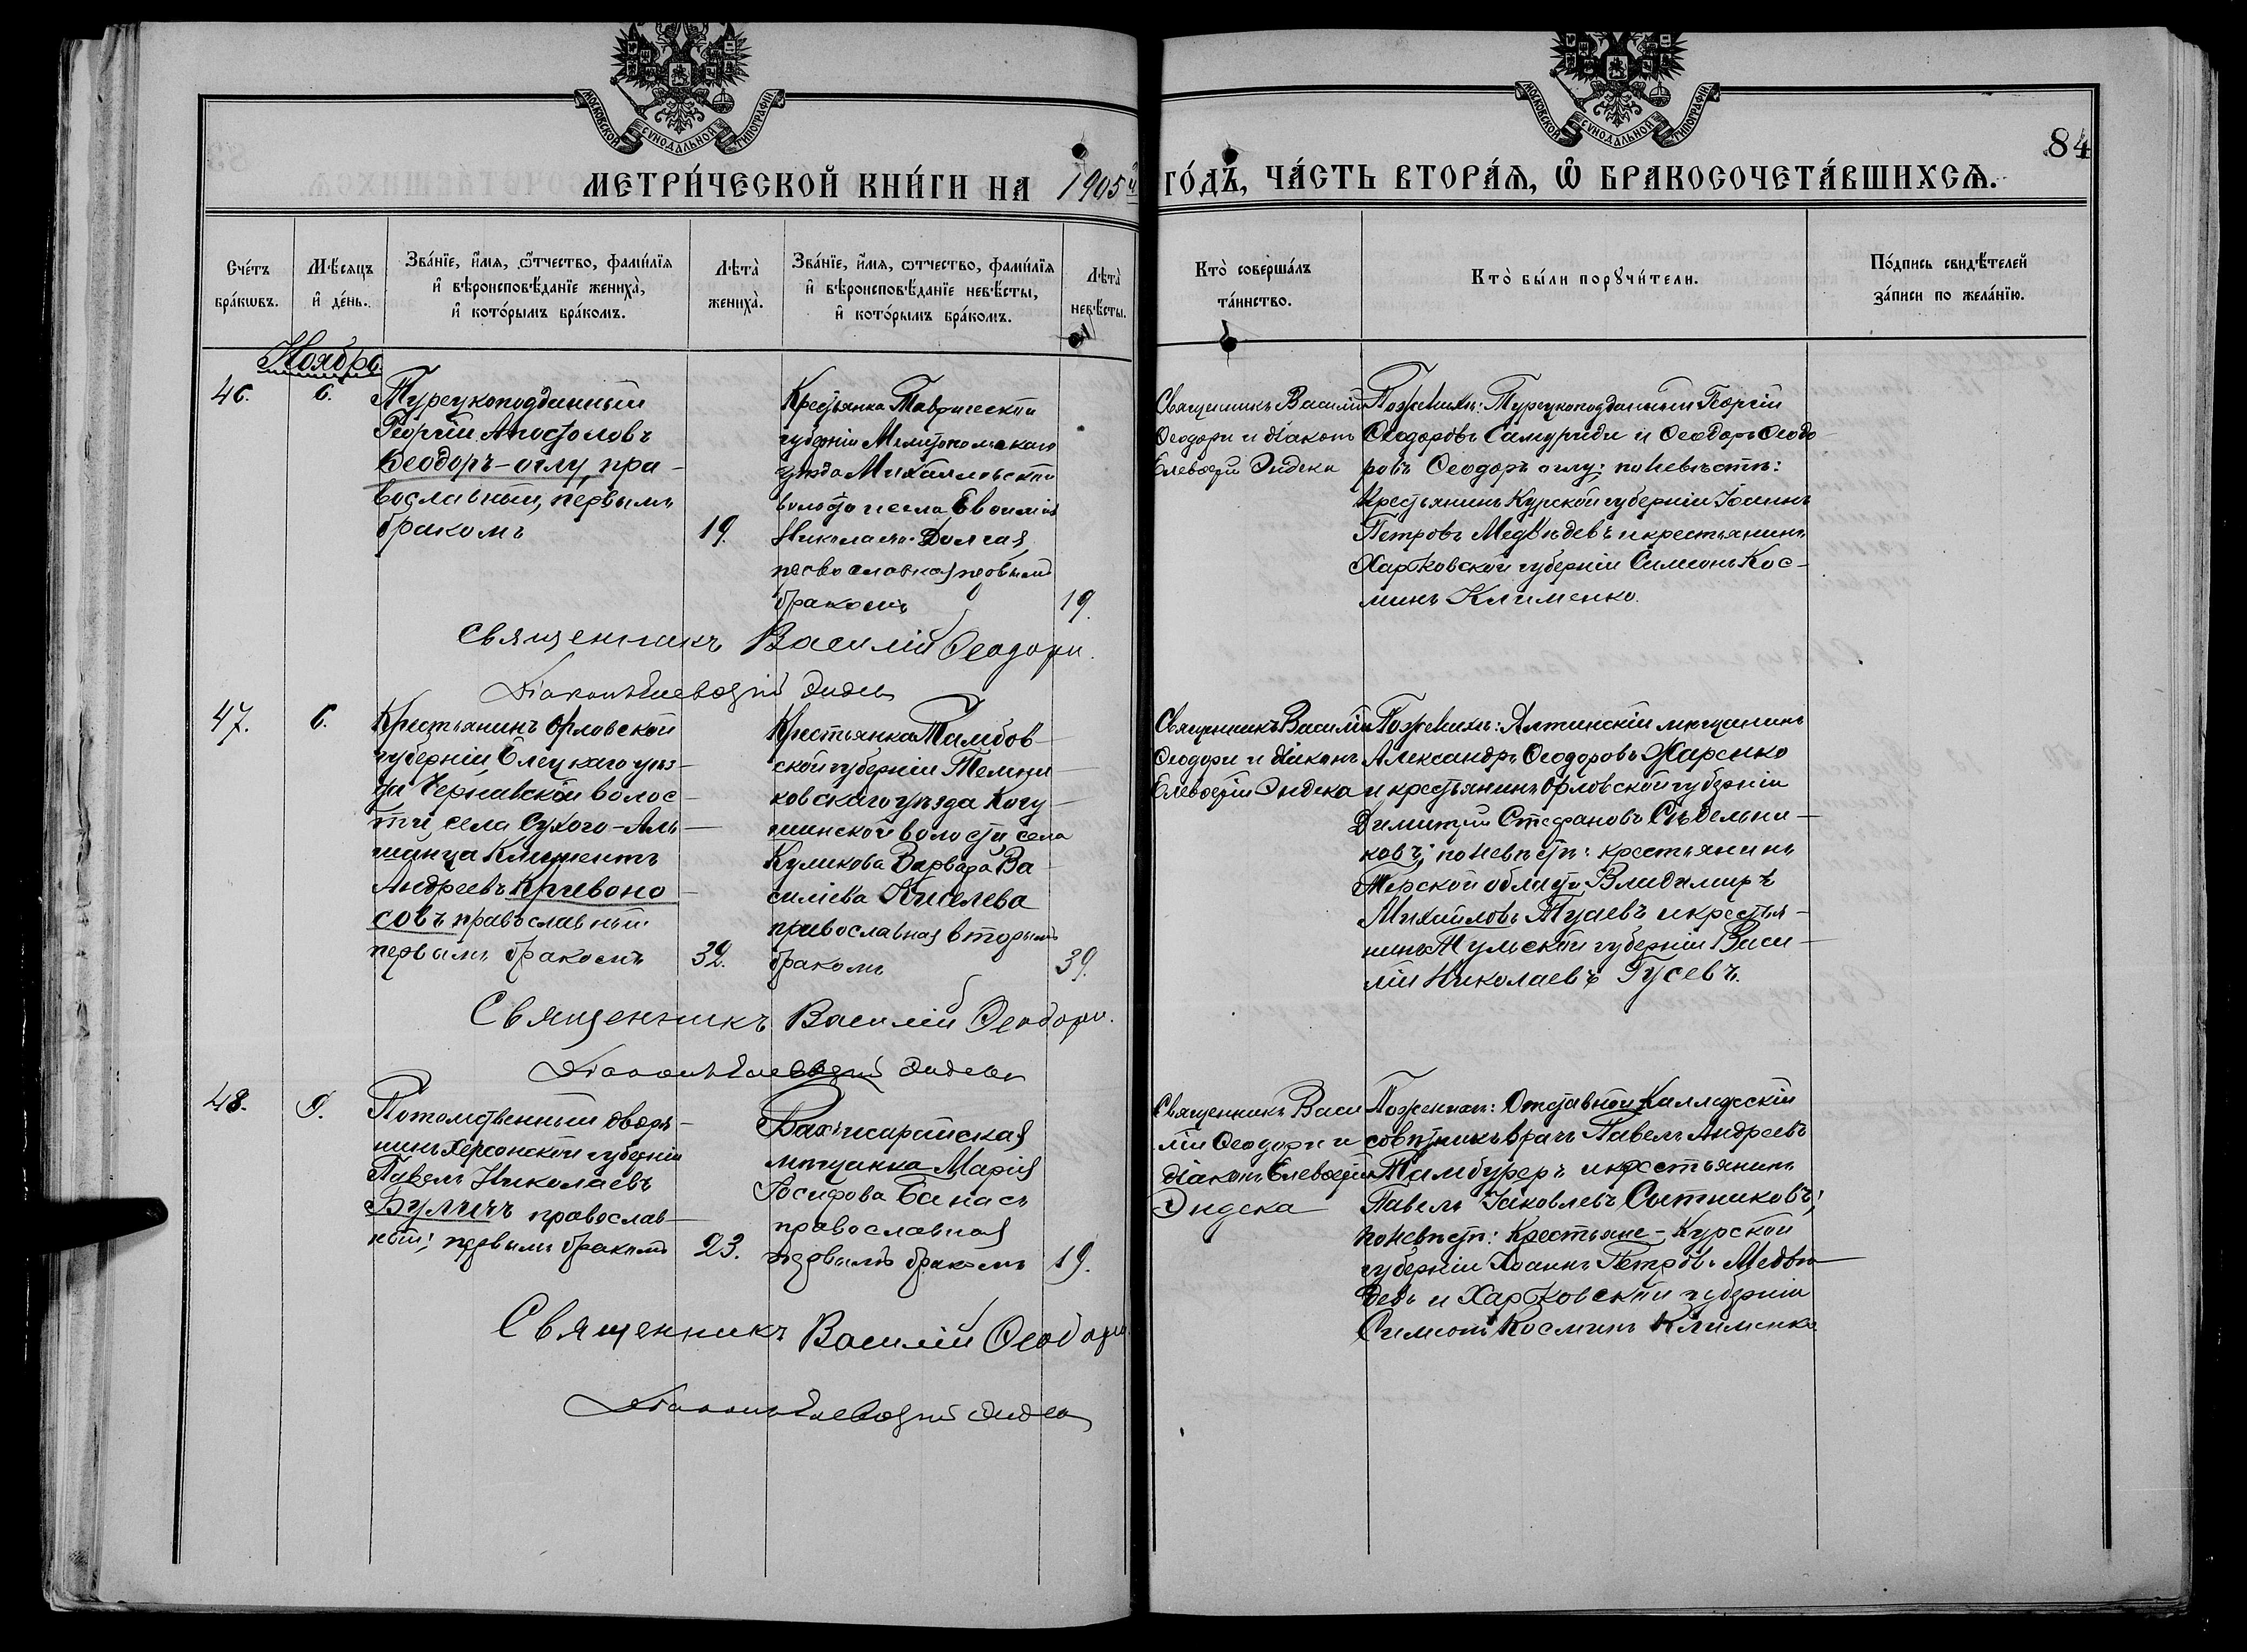 МОСКОВСКОЙ СѴНОДАЛЬНОЙ ТИПОГРАФІИ
МОСКОВСКОЙ СѴНОДАЛЬНОЙ ТИПОГРАФІИ
84
МЕТРИ́ЧЕСКОЙ КНИ́ГИ НА 1905 й ГО́ДЪ, ЧА́СТЬ ВТОРА́Ѧ, Ѡ҆ БРАКОСОЧЕТА́ВШИХСѦ.
Сче́тъ бра́кѡвъ.
Мѣ́сѧцъ и҆ де́нь.
Зва́нїе, и҆́мѧ, ѻ҆́тчество, фами́лїѧ
и҆ вѣроисповѣ́данїе жениха̀,
и҆ кото́рымъ бра́комъ.
Лѣта̀ жениха̀.
Зва́нїе, и҆́мѧ, ѻ҆́тчество, фами́лїѧ
и҆ вѣроисповѣ́данїе невѣ́сты,
и҆ кото́рымъ бра́комъ.
Лѣта̀ невѣ́сты.
Кто̀ соверша́лъ та́инство.
Кто̀ бы́ли порꙋчи́тели.
По́дпись свидѣ́телей
за́писи по жела́нїю.
Ноябрь
46.
6.
Турецкоподданный
Георгій Апостоловъ
Ѳеодоръ-оглу, пра-
вославный, первымъ
бракомъ
19.
Крестьянка Таврической
губерніи Мелитопольскаго
уѣзда Михайловской
волости и села Евѳимія
Николаева Долгая,
православная первымъ
бракомъ
19.
Священникъ Василій
Ѳеодори и діаконъ
Елевѳерій Эндека
По женихѣ: Турецкоподданный Георгій
Ѳеодоровъ Самуриди и Ѳеодоръ Ѳеодо-
ровъ Ѳеодоръ оглу; по невѣстѣ:
крестьянинъ Курской губерніи Іоаннъ
Петровъ Медвѣдевъ и крестьянинъ
Харьковской губерніи Симеонъ Кос-
минъ Клименко.
Священникъ Василій Ѳеодори.
Діаконъ Елевѳерій
47.
6.
Крестьянинъ Орловской
губерніи Елецкаго уѣз-
да Чернавской волос-
ти, села Сухого-Аль-
шанца Климентъ
Андреевъ Кривоно-
совъ православный
первымъ бракомъ
32.
Крестьянка Тамбов-
ской губерніи Темни-
ковскаго уѣзда Кочу-
шинской волости села
Куликова Варвара Ва-
силіева Киселева
православная вторымъ
бракомъ
39.
Священникъ Василій
Ѳеодори и діаконъ
Елевѳерій Эндека
По женихѣ: Ялтинскій мѣщанинъ
Александръ Ѳеодоровъ Харенко
и крестьянинъ Орловской губерніи
Димитрій Стефановъ Сѣдельни-
ковъ; по невѣстѣ: крестьянинъ
Терской области Владиміръ
Михайловъ Тугаевъ и крестья-
нинъ Тульской губерніи Васи-
лій Николаевъ Гусевъ.
Священникъ Василій Ѳеодори.
Діаконъ Елевѳерій
48.
9.
Потомственный дворя-
нинъ Херсонской губерніи
Павелъ Николаевъ
Буличъ православ-
ный; первымъ бракомъ
23.
Бахчисарайская
мѣщанка Марія
Іосифова Банасъ
православная
первымъ бракомъ
19.
Священникъ Васи-
лій Ѳеодори и
діаконъ Елевѳерій
Эндека
По женихѣ: Отставной Коллежскій
совѣтникъ врачъ Павелъ Андреевъ
Тамбуреръ и крестьянинъ
Павелъ Іаковлевъ Сытниковъ;
по невѣстѣ: Крестьяне-Курской
губерніи Іоаннъ Петровъ Медвѣ-
девъ и Харьковской губерніи
Симеонъ Косминъ Клименко
Священникъ Василій Ѳеодори
Діаконъ Елевѳерій